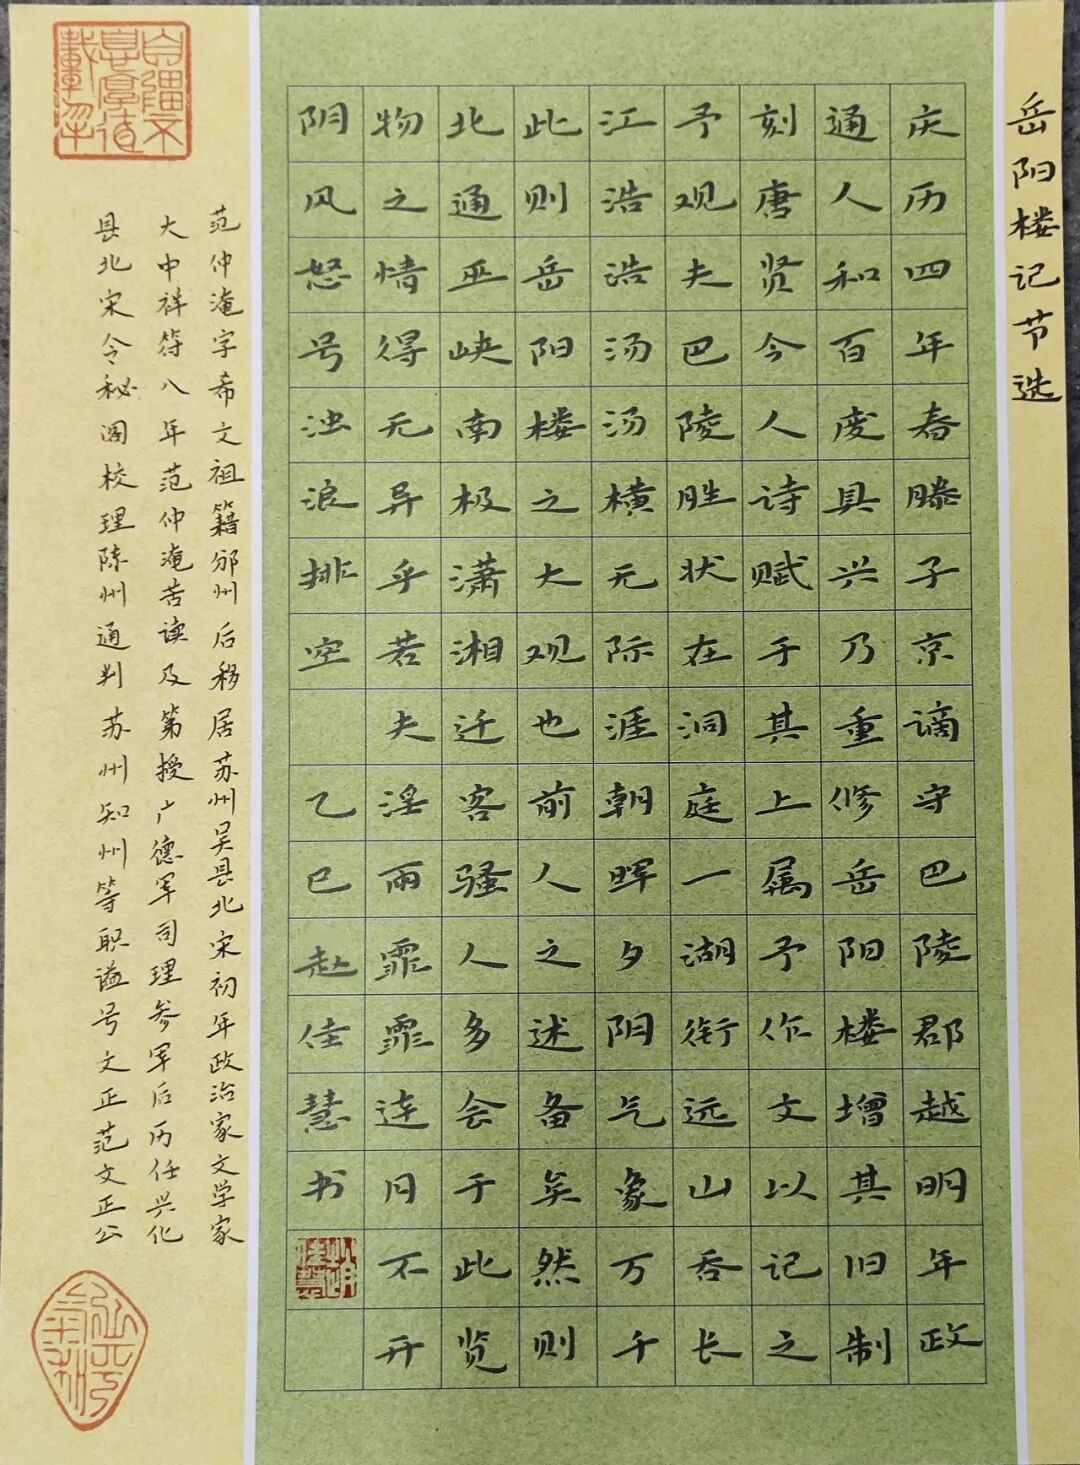 岳阳楼记节选
庆历四年春滕子京谪守巴陵郡越明年政
通人和百废具兴乃重修岳阳楼增其旧制
刻唐贤今人诗赋于其上属予作文以记之
予观夫巴陵胜状在洞庭一湖衔远山吞长
江浩浩汤汤横无际涯朝晖夕阴气象万千
此则岳阳楼之大观也前人之述备矣然则
北通巫峡南极潇湘迁客骚人多会于此览
物之情得无异乎若夫淫雨霏霏连月不开
阴风怒号浊浪排空 乙巳赵佳慧书
范仲淹字希文祖籍邠州后移居苏州吴县北宋初年政治家文学家
大中祥符八年范仲淹苦读及第授广德军司理参军后历任兴化
县北宋令秘阁校理陈州通判苏州知州等职谥号文正范文正公